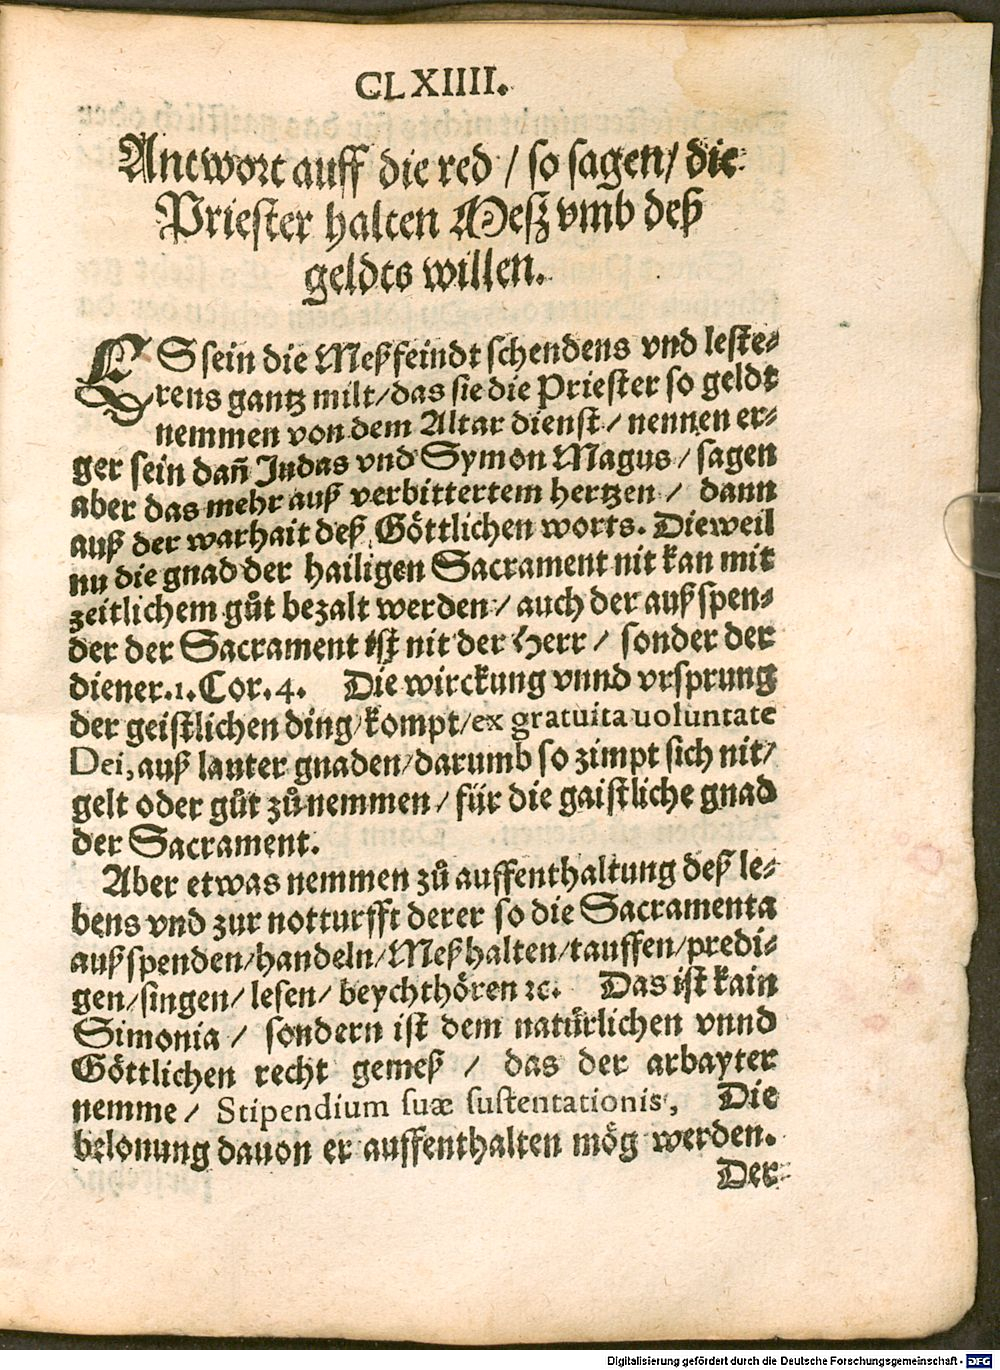 CLXIIII.
Antwort auff die red / so sagen / die
Priester halten Mesz vmb deß
geldts willen.
ES sein die Meßfeindt schendens vnd leste-
rens gantz milt / das sie die Priester so geldt
nemmen von dem Altar dienst / nennen er-
ger sein dañ Judas vnd Symon Magus / sagen
aber das mehr auß verbittertem hertzen / dann
auß der warhait deß Göttlichen worts. Dieweil
nu die gnad der hailigen Sacrament nit kan mit
zeitlichem gůt bezalt werden / auch der außspen-
der der Sacrament ist nit der Herr / sonder der
diener. 1. Cor. 4. Die wirckung vnnd vrsprung
der geistlichen ding / kompt / ex gratuita uoluntate
Dei, auß lauter gnaden / darumb so zimpt sich nit /
gelt oder gůt zů nemmen / für die gaistliche gnad
der Sacrament.
Aber etwas nemmen zů auffenthaltung deß le-
bens vnd zur notturfft derer so die Sacramenta
außspenden / handeln / Meßhalten / tauffen / predi-
gen / singen / lesen / beychthören ꝛc. Das ist kain
Simonia / sondern ist dem natürlichen vnnd
Göttlichen recht gemeß / das der arbayter
nemme / Stipendium suæ sustentationis, Die
belonung dauon er auffenthalten mög werden.
Der
Digitalisierung gefördert durch die Deutsche Forschungsgemeinschaft - DFG